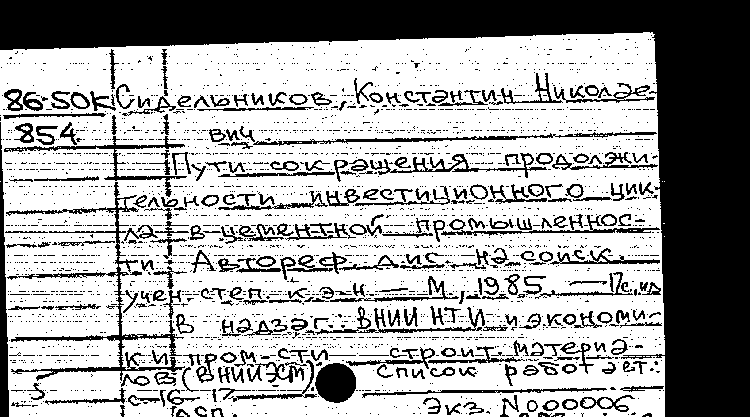 86-50К Сидельников, Константин Николае-
854 вич.
Пути сокращения продолжи-
тельности инвестиционного цик-
ла в цементной промышленнос-
ти. Автореф. дис. на соиск.
учен. степ. к.э.н. — М., 1985. —
В надзаг.: ВНИИ НТИ и экономи-
ки пром-сти строит. материа-
лов (ВНИИЭСМ) Список работ авт.:
с. 16-17
Экз. N000006